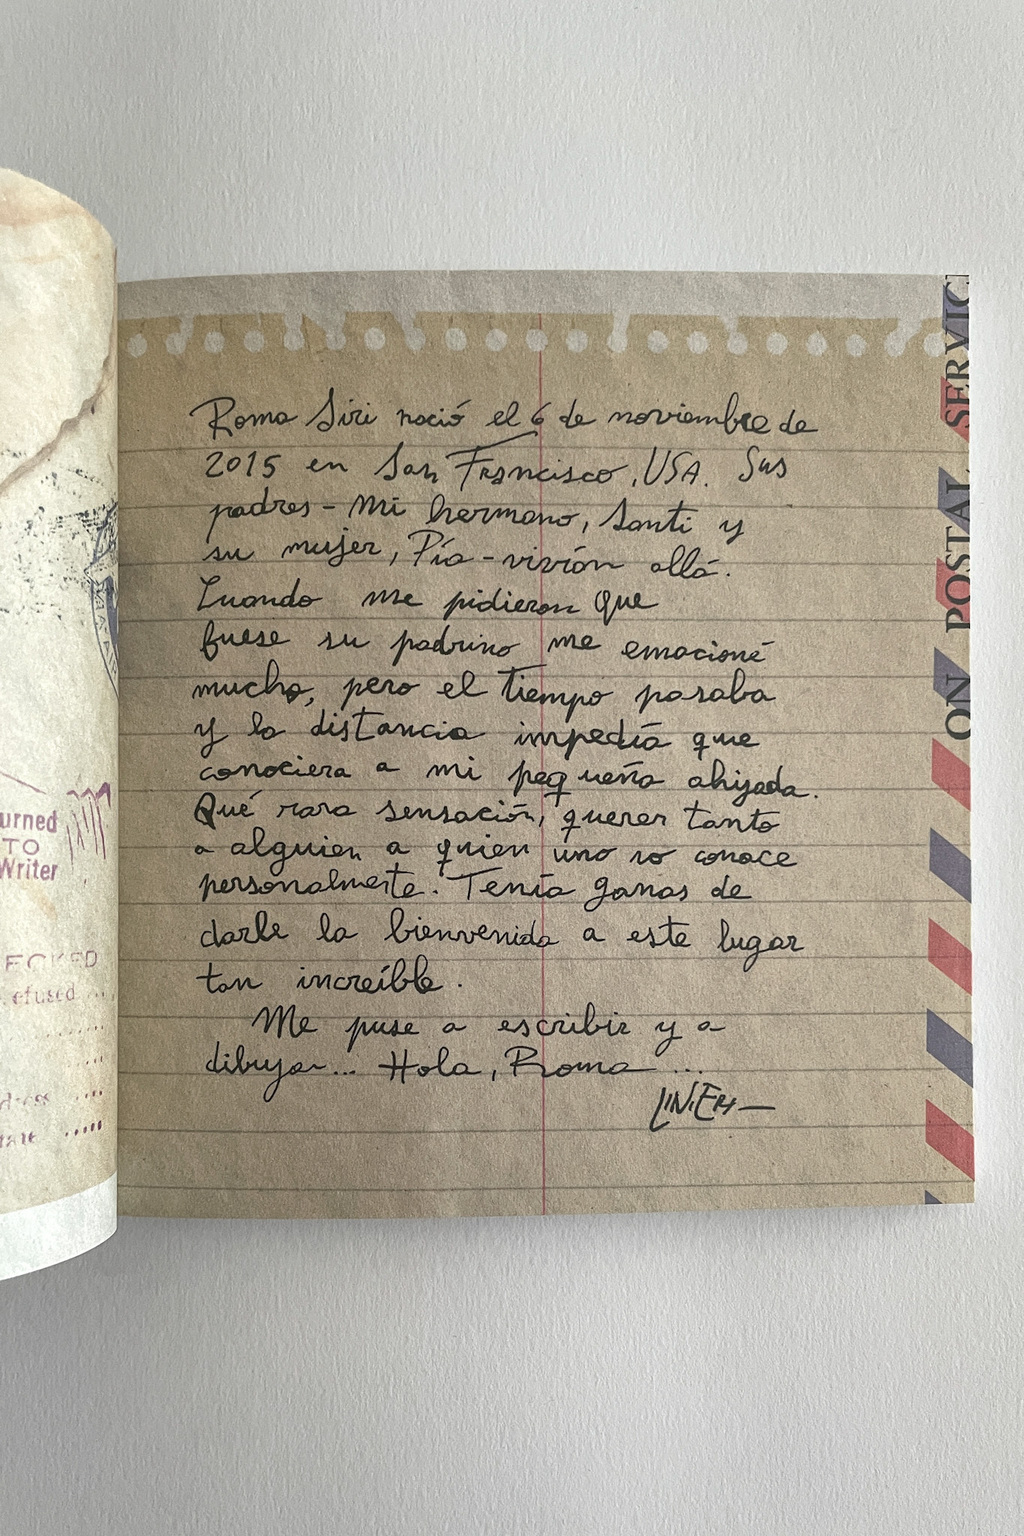 Roma Siri nació el 6 de noviembre de
2015 en San Francisco, USA. Sus
padres - mi hermano, Santi y
su mujer, Pía - vivían allá.
Cuando me pidieron que
fuese su padrino me emocioné
mucho, pero el tiempo pasaba
y la distancia impedía que
conociera a mi pequeña ahijada.
Qué rara sensación, querer tanto
a alguien a quien uno no conoce
personalmente. Tenía ganas de
darle la bienvenida a este lugar
tan increíble.
Me puse a escribir y a
dibujar... Hola, Roma ...
LINIERS
ON POSTAL SERVIC
urned
TO
Writer
ECKED
efused